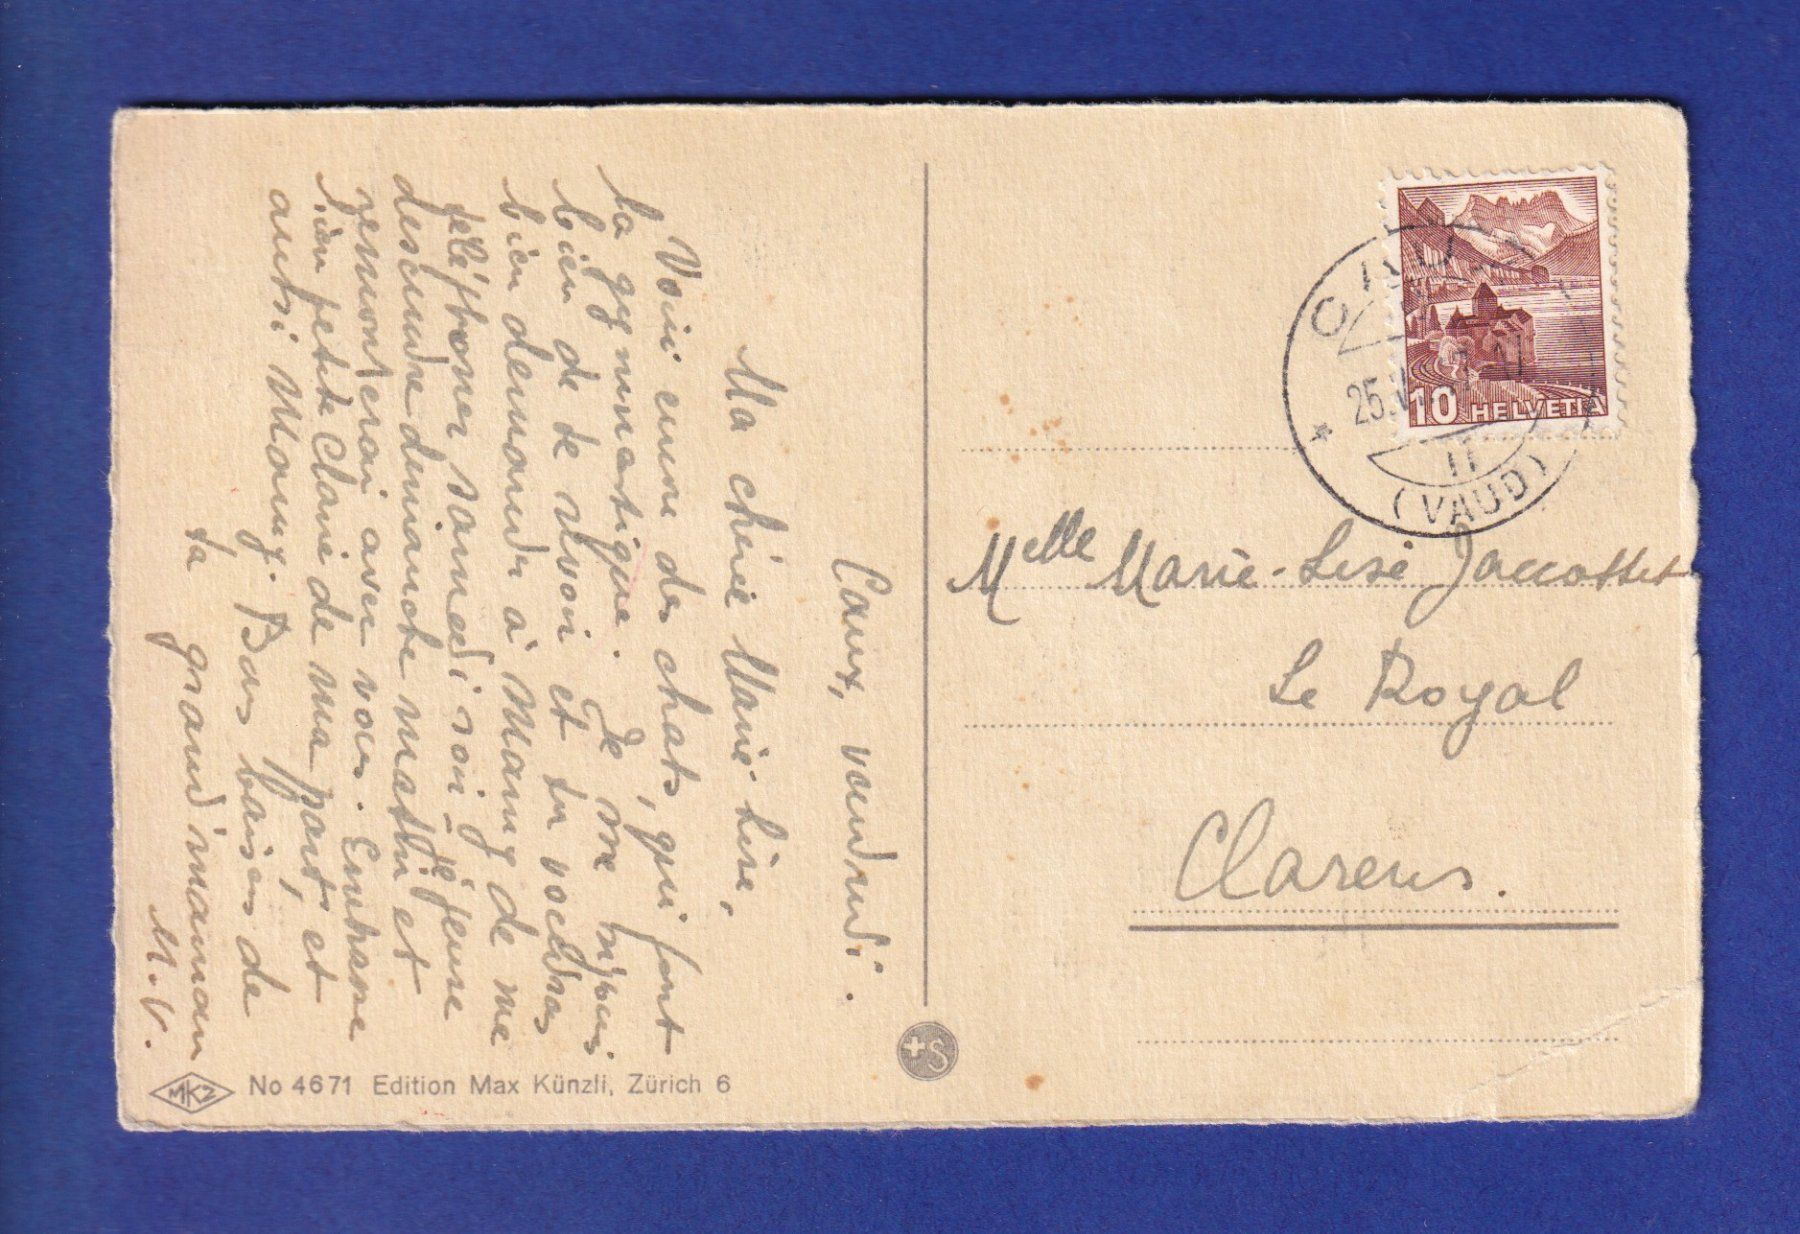 Caux, vendredi.
Ma chérie Marie Lise,
Voici encore des chats, qui font
la gymnastique. Je me réjouis
bien de te revoir et tu voudras
bien demander à Maung de me
téléphoner samedi soir si je peux
descendre dimanche matin et
remonterai avec vous. Embrasse
bien petite Claire de ma part, et
aussi Maung. Bons baisers de
ta grand'maman
M. V.
MKZ No 4671 Edition Max Künzli, Zürich 6
+S
CAUX
25.V
(VAUD)
10 HELVETIA
Melle Marie-Lise Jaccottet
Le Royal
Clarens.